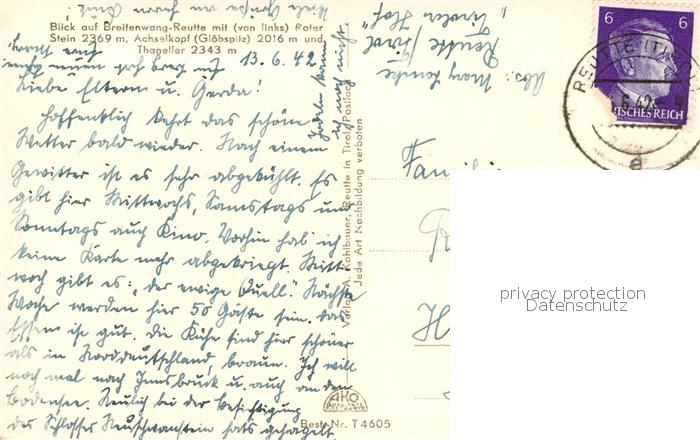 Blick auf Breitenwang-Reutte mit (von links) Roter
Stein 2369 m, Achselkopf (Gläbspitz) 2016 m und
Thaneller 2343 m
13.6.42.
Liebe Eltern u. Gerda!
Hoffentlich kehrt das schöne
Wetter bald wieder. Nach einem
Gewitter ist es sehr abgekühlt. Es
gibt hier Mittwochs, Samstags und
Sonntags auch Kino. Vorhin hab ich
keine Karte mehr abgekriegt. Mitt-
woch gibt es: "der ewige Quell". Nächste
Woche werden hier 50 Gäste sein. das
Essen ist gut. Die Kühe sind hier schöner
als in Norddeutschland, braun. Ich will
noch mal nach Innsbruck u. auch an den
Bodensee. Neulich bei der Besichtigung
des Schlosses Neuschwanstein hats gehagelt.
ich mag nicht.
Verlag A. Kohlbauer, Reutte in Tirol, Postfach
Jede Art Nachbildung verboten
AKO
Best.-Nr. T 4605
Abs: Mary
Reutte/Tirol
"Tiroler Hof"
Familie
H
6 6
DEUTSCHES REICH
REUTTE (TI
6.42
a
privacy protection
Datenschutz